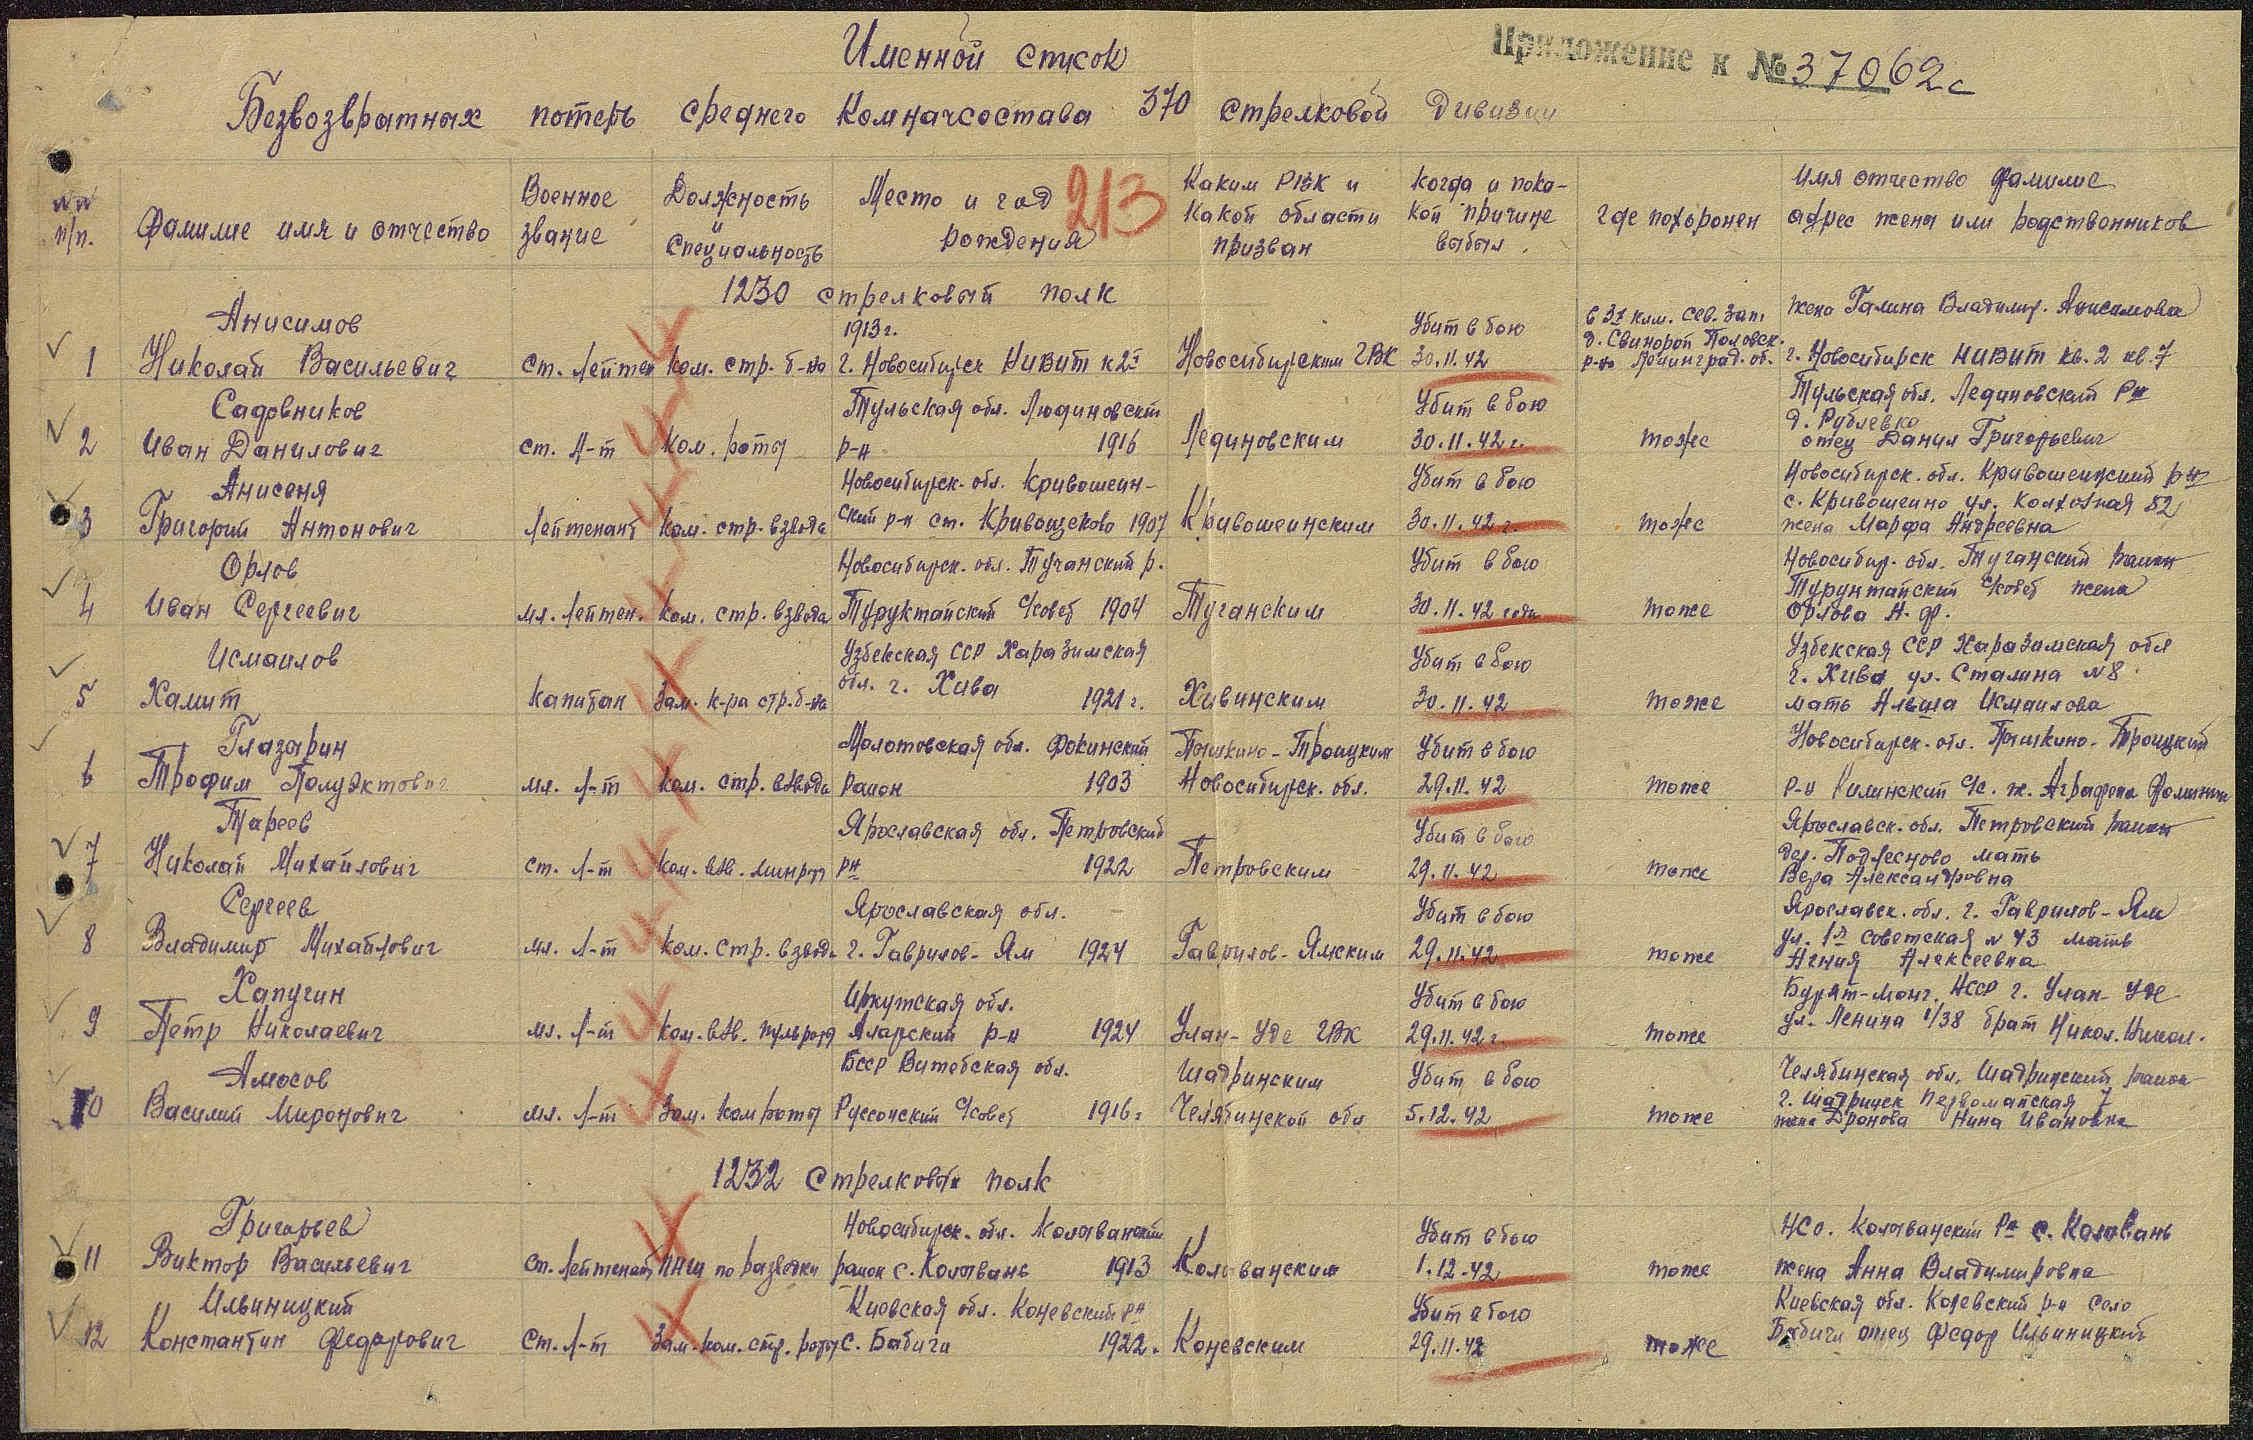 Приложение к № 37062с
Именной список
Безвозвратных потерь среднего комначсостава 370 стрелковой дивизии
213
№№ п/п.
Фамилие имя и отчество
Военное звание
Должность и специальность
Место и год рождения
Каким РВК и какой области призван
Когда и пока-кой причине выбыл.
Где похоронен
Имя отчество фамилие адрес жены или родственников
1230 стрелковый полк
1 Анисимов Николай Васильевич ст. лейтен ком. стр. б-на 1913 г. г. Новосибирск НИВИТ к 2 Новосибирским ГВК Убит в бою 30.11.42 в 37 клм. сев. зап. д. Свинорой Половск. р-на Ленинград. об. жена Галина Владимир. Анисимова г. Новосибирск НИВИТ кв. 2 кв. 7
2 Садовников Иван Данилович ст. л-т ком. роты Тульская обл. Людиновский р-н 1916 Лединовским Убит в бою 30.11.42 г. тоже Тульская обл. Лединовский рн д. Рублевка отец Данил Григорьевич
3 Анисеня Григорий Антонович лейтенант ком. стр. взвода Новосибирск. обл. Кривошеин-ский р-н ст. Кривощеково 1907 Кривошеинским Убит в бою 30.11.42 г. тоже Новосибирск. обл. Кривошеинский рн с. Кривошеино ул. Колхозная 52 жена Марфа Андреевна
4 Орлов Иван Сергеевич мл. лейтен. ком. стр. взвода Новосибирск. обл. Туганский р. Турунтайский с/совет 1904 Туганским Убит в бою 30.11.42 года тоже Новосибир. обл. Туганский район Турунтайский с/совет жена Орлова А. Ф.
5 Исмаилов Хамит капитан Зам. к-ра стр. б-на Узбекская ССР Харазимская обл. г. Хива 1921 г. Хивинским Убит в бою 30.11.42 тоже Узбекская ССР Харазимская обл г. Хива ул. Сталина №8. мать Исмаилова
6 Глазарин Трофим Полуэктович мл. л-т ком. стр. взвода Молотовская обл. Фокинский район 1903 Пышкино-Троицким Новосибирск. обл. Убит в бою 29.11.42 тоже Новосибирск. обл. Пышкино-Троицкий р-н с/с. ж. Аграфена
7 Тареев Николай Михайлович ст. л-т ком. взв. минрот Ярославская обл. Петровский рн 1922 Петровским Убит в бою 29.11.42 тоже Ярославск. обл. Петровский район дер. Подлесново мать Вера Александровна
8 Сергеев Владимир Михайлович мл. л-т ком. стр. взвода Ярославская обл. г. Гаврилов-Ям 1924 Гаврилов-Ямским Убит в бою 29.11.42 тоже Ярославск. обл. г. Гаврилов-Ям ул. 1я советская № 43 мать Алексеевна
9 Хапугин Петр Николаевич мл. л-т ком. взв. пульрота Иркутская обл. Аларский р-н 1924 Улан-Уде ГВК Убит в бою 29.11.42 г. тоже Бурят-монг. АССР г. Улан-Уде ул. Ленина 1/38 брат Никол. Никол.
10 Амосов Василий Миронович мл. л-т Зам. ком роты БССР Витебская обл. Руссонский с/совет 1916 г Шадринским Челябинской обл Убит в бою 5.12.42 тоже Челябинская обл. Шадринский район г. Шадринск Первомайская 7 жена Дронова Нина Ивановна
1232 стрелковый полк
11 Григорьев Виктор Васильевич ст. лейтенант ПНШ по разведки Новосибирск. обл. Колыванский район с. Колывань 1913 Колыванским Убит в бою 1.12.42 тоже НСО. Колыванский рн с. Колывань жена Анна Владимировна
12 Ильиницкий Константин Федорович ст. л-т Зам. ком. стр. роты Киевская обл. Коневский рн с. Бабичи 1922. Коневским Убит в бою 29.11.42 тоже Киевская обл. Коневский р-н село Бабичи отец Федор Ильиницкий